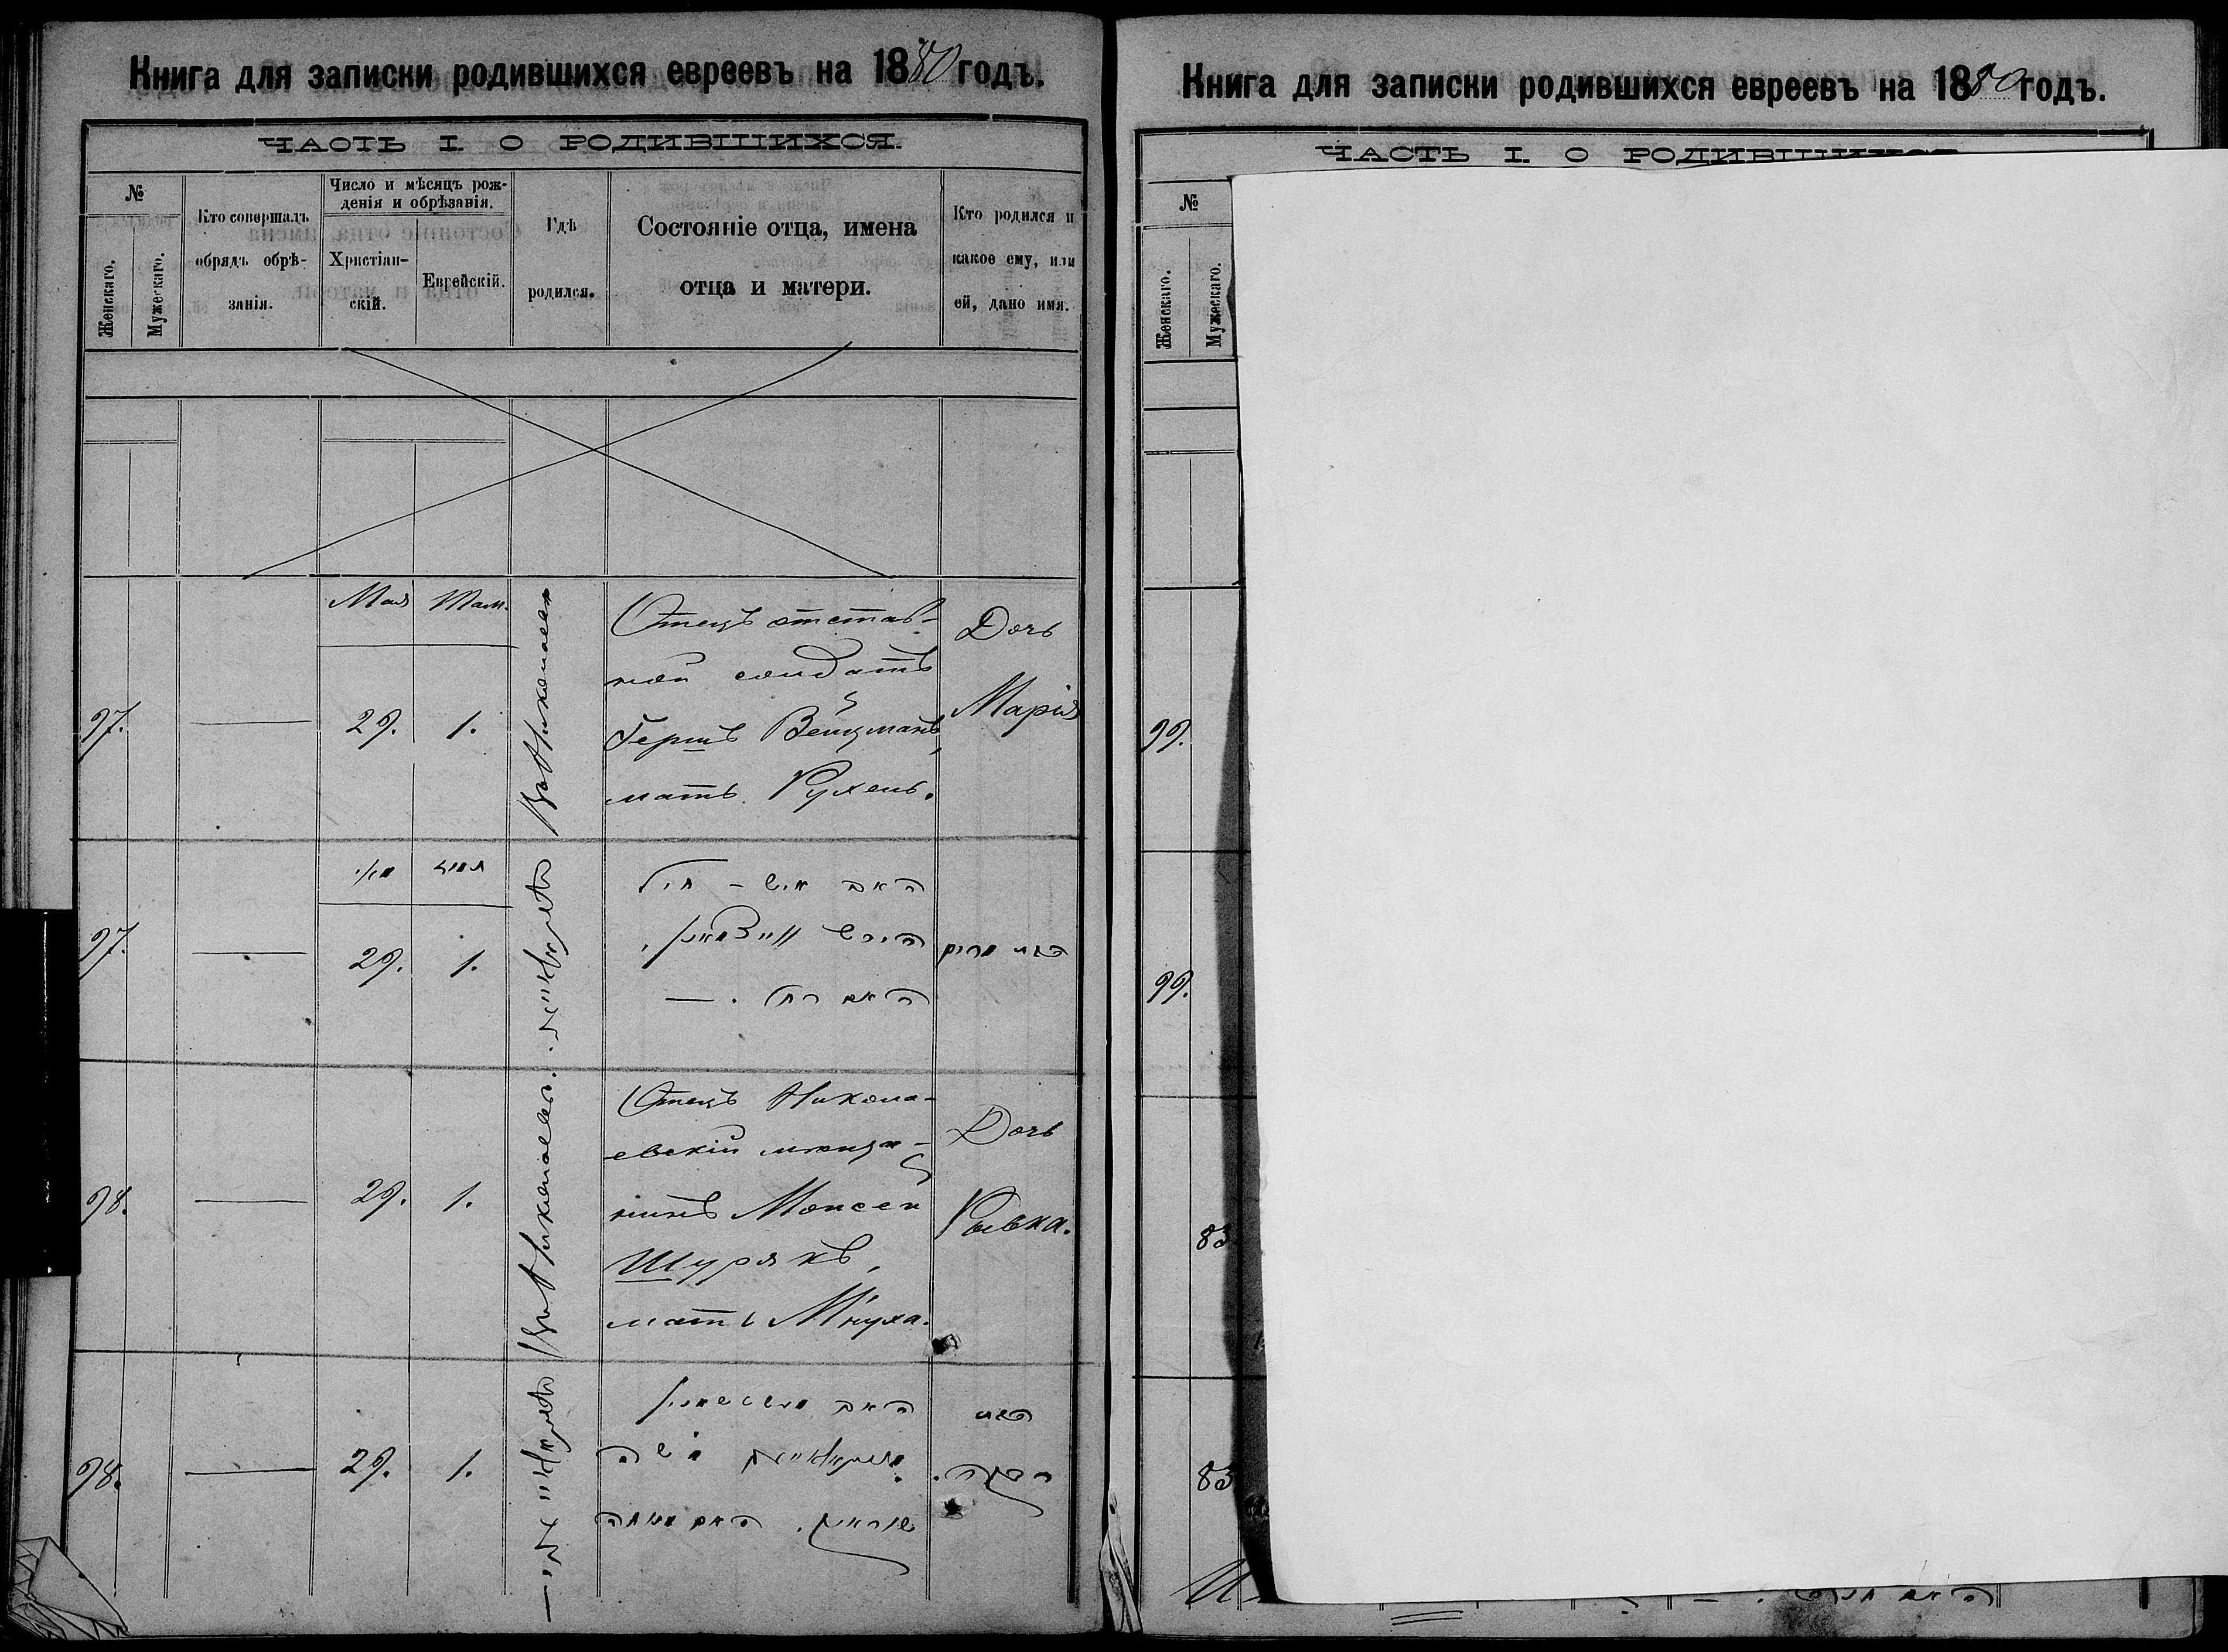 Книга для записки родившихся евреевъ на 1880 годъ.
ЧАСТЬ I. О РОДИВШИХСЯ.
№
Женскаго.
Мужескаго.
Кто совершалъ
обрядъ обрѣ-
занія.
Число и мѣсяцъ рож-
денія и обрѣзанія.
Христіан-
скій.
Еврейскій.
Гдѣ
родился.
Состояніе отца, имена
отца и матери.
Кто родился и
какое ему, или
ей, дано имя.
97.
Мая
29.
1.
Отецъ отстав-
ной солдатъ
Гершъ Вейцманъ,
мать Рухель.
Дочь
Марія
97.
29.
1.
האב איש - חיל
הירש ווייצמאן,
האם רחל. —
בת מרים
98.
29.
1.
Отецъ Никола-
евскій мѣща-
нинъ Моисей
Шурякъ,
мать Мнуха.
Дочь
Рывка.
98.
29.
1.
משה
האם מנוחה
רבקה.
Книга для записки родившихся евреевъ на 1880 годъ.
ЧАСТЬ I. О РОДИВШИХСЯ
№
Женскаго.
Мужескаго.
99.
99.
83
83